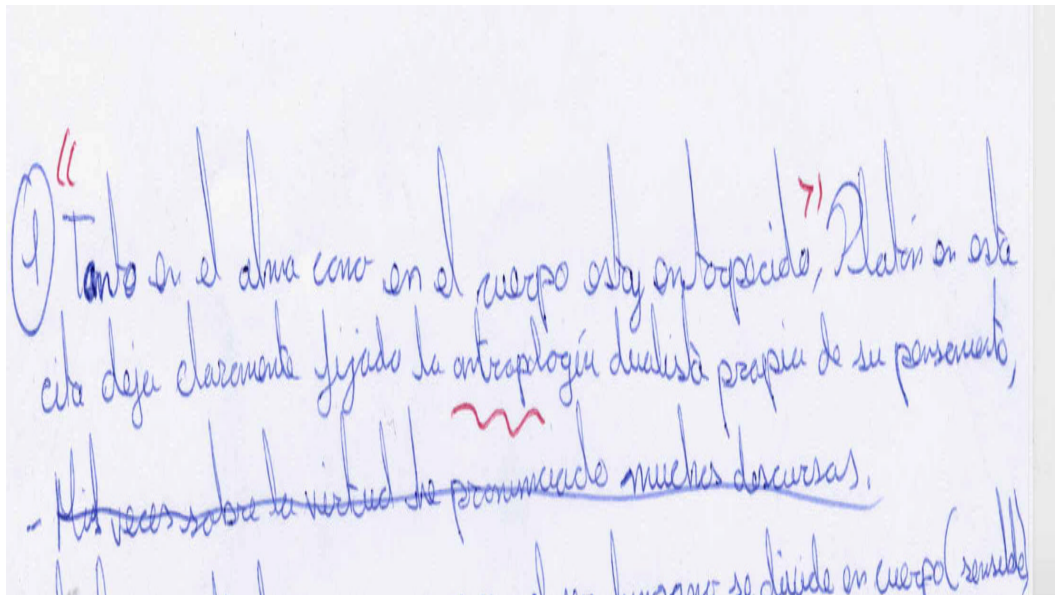 ① "Tanto en el alma como en el cuerpo estoy entorpecido", Platón en esta
cita deja claramente fijado la antroplogía dualista propia de su pensamiento,
- Mil veces sobre la virtud he pronunciado muchos discursos.
se divide en cuerpo (sensible)